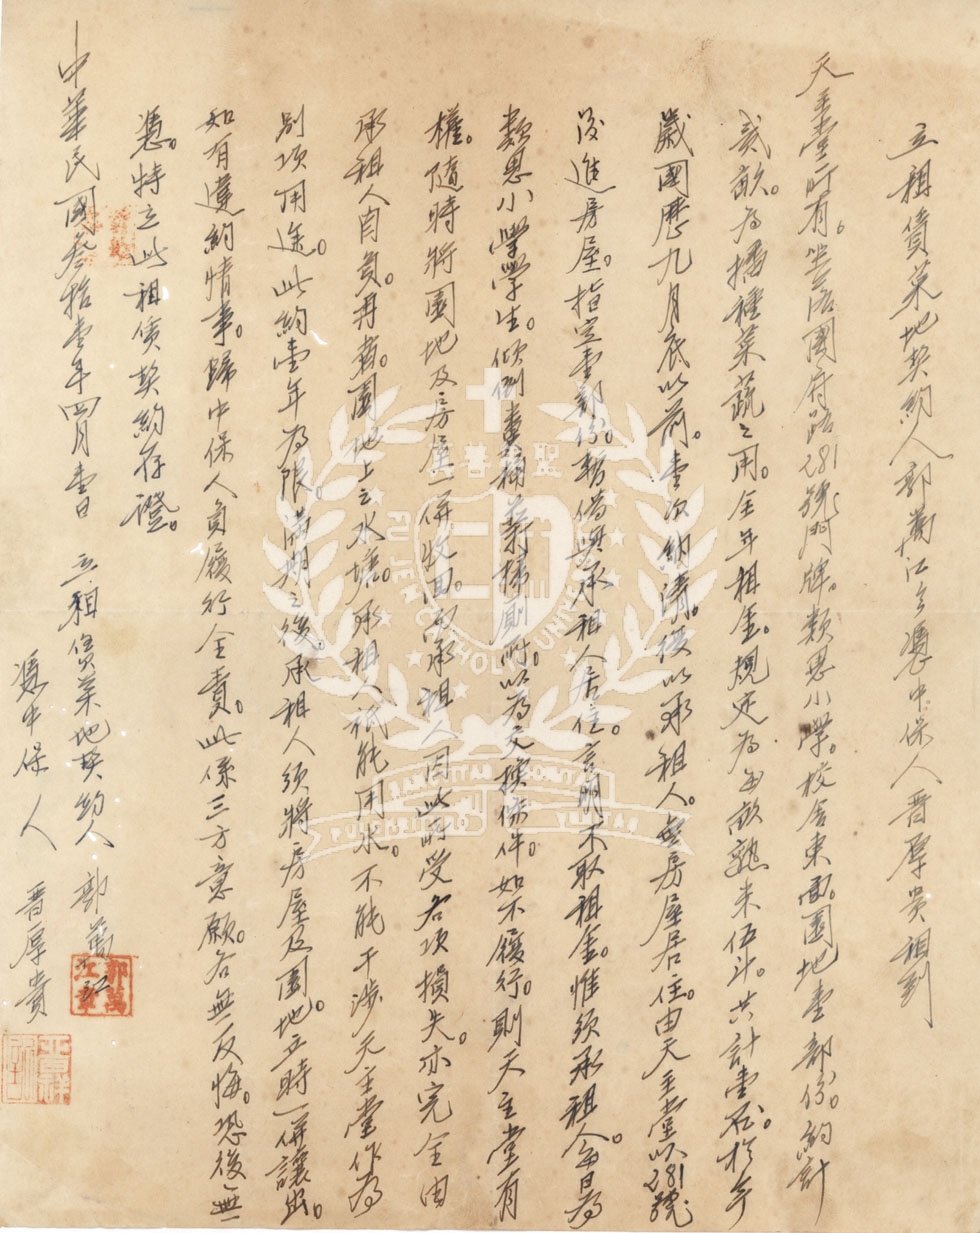 立租賃菜地契約人郭萬江今憑中保人晋厚贵租到
天主堂所有。坐落國府路281號門牌。類思小學。校舍東面。園地壹部份。約計
貳畝。為播種菜蔬之用。全年租金。規定為每畝熟米伍斗。共計壹石。於每
歲國歷九月底以前。壹次納清。復以承租人。無房屋居住。由天主堂以281號
後進房屋。指定壹部份。暫借與承租人居住。言明不取租金。惟須承租人每日為
類思小學學生。傾倒糞桶。打掃廁所。以為交換條件。如不履行。則天主堂有
權。隨時將園地及房屋一併收回。而承租人因此所受各項損失。亦完全由
承租人自負。再者。園地上之水塘。承租人祇能用水。不能干涉天主堂作為
別項用途。此約壹年為限。滿期之後。承租人須將房屋及園地。立時一併讓出。
如有違約情事。歸中保人負履行全責。此係三方意願。各無反悔。恐後無
憑。特立此租賃契約存證。
中華民國叁拾壹年四月壹日 立租賃菜地契約人 郭萬江
憑中保人 晋厚貴
郭萬江章
FU JEN CATHOLIC UNIVERSITY
SANCTITAS BONITAS
PULCHRITUDO VERITAS